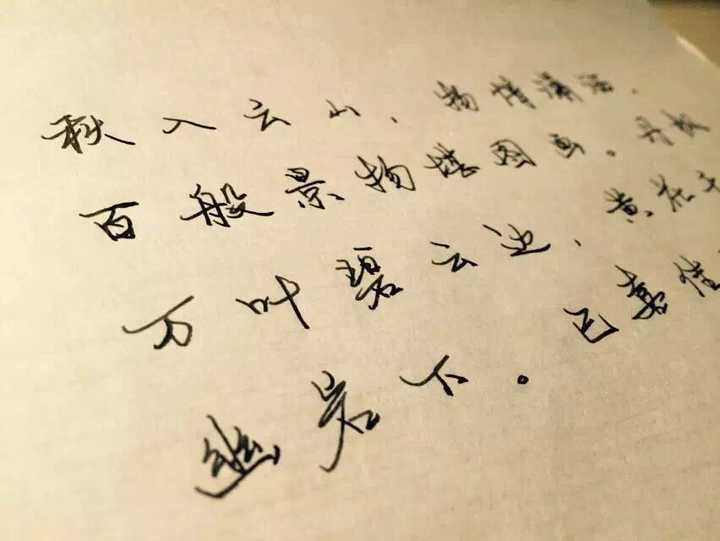 秋入云山、物情潇洒.
百般景物堪图画。丹枫
万叶碧云边、黄花千
幽岩下。已喜佳